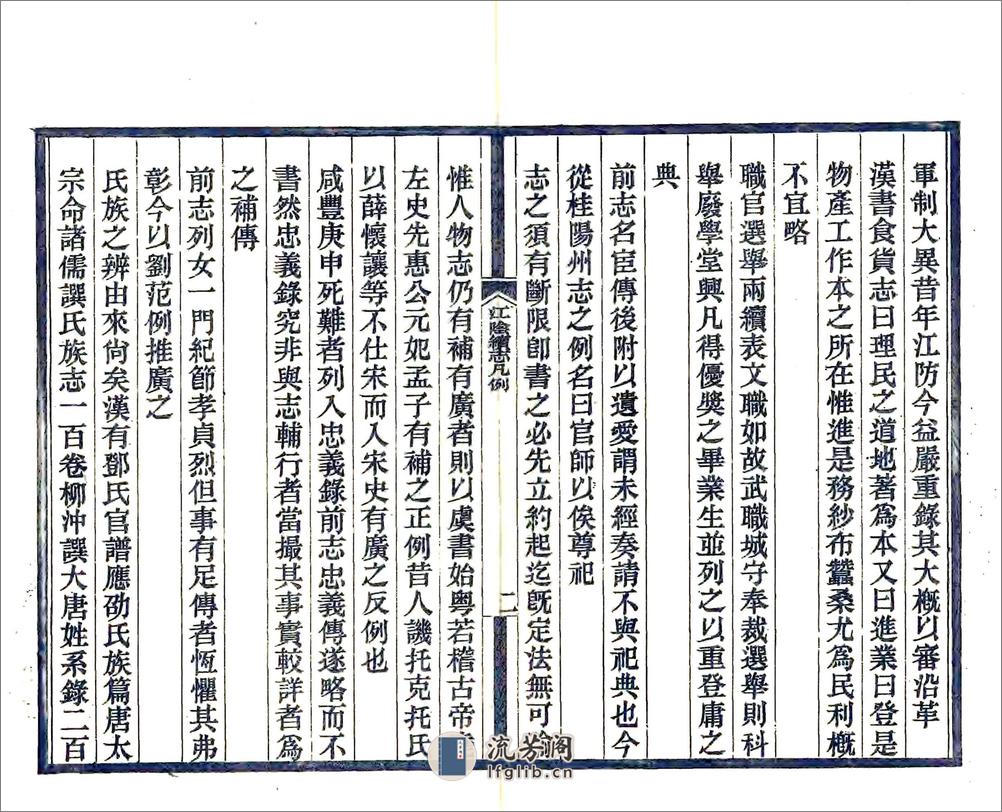 軍制大異昔年江防今益嚴重錄其大槪以審沿革
漢書食貨志曰理民之道地著爲本又曰進業曰登是
物產工作本之所在惟進是務紗布蠶桑尤爲民利槪
不宜略
職官選舉兩續表文職如故武職城守奉裁選舉則科
舉廢學堂興凡得優獎之畢業生並列之以重登庸之
典
前志名宦傳後附以遺愛謂未經奏請不與祀典也今
從桂陽州志之例名曰官師以俟尊祀
志之須有斷限卽書之必先立約起迄旣定法無可
江陰續志凡例
二
惟人物志仍有補有廣者則以虞書始粵若稽古帝
左史先惠公元妃孟子有補之正例昔人譏托克托氏
以薛懷讓等不仕宋而入宋史有廣之反例也
咸豐庚申死難者列入忠義錄前志忠義傳遂略而不
書然忠義錄究非與志輔行者當撮其事實較詳者爲
之補傳
前志列女一門紀節孝貞烈但事有足傳者恆懼其弗
彰今以劉范例推廣之
氏族之辨由來尙矣漢有鄧氏官譜應劭氏族篇唐太
宗命諸儒譔氏族志一百卷柳沖譔大唐姓系錄二百
流芳阁
lfglib.cn